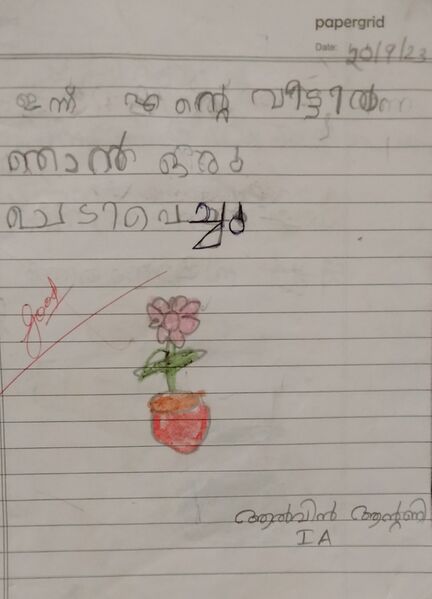 papergrid
Date: 20/9/23
ഇന്ന് എന്റെ വീട്ടിൽ
ഞാൻ ഒരു
ചെടിവെച്ചു
good
ആൽബിൻ ആന്റണി
I A